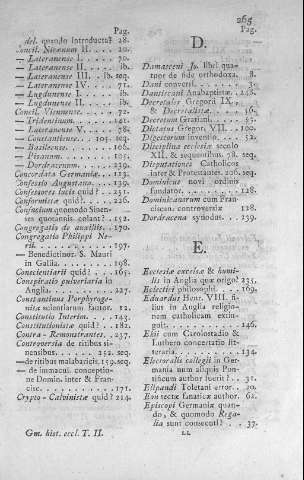 265
Pag.
del. quando introducta? 28.
Concil. Nicænum II. . . . 20.
— Lateranense I. . . . . 70.
— Lateranense II. . . . . ib.
— Lateranense III. . ib. seq.
— Lateranense IV. . . . . 71.
— Lugdunense I. . . . . ib.
— Lugdunense II. . . . . ib.
Concil. Viennense. . . . . 72.
— Tridentinum. . . . . 141.
— Lateranense V. . . . . 78.
— Constantiense. . 105. seq.
— Basileense. . . . . 106.
— Pisanum. . . . . 105.
— Dordracenum. . . . . 239.
Concordata Germaniæ. . . 123.
Confessio Augustana. . . 139.
Confessores lucis quid? . . 251.
Conformistæ quid? . . . . 226.
Confucium quomodo Sinenses
quotannis colant? . 152.
Congregatio de auxiliis. . 170.
Congregatio Philippi Nerii.
. . . . . 197.
— Benedictinor. S. Mauri
in Gallia. . . . . 198.
Conscientiarii quid? . . . 165.
Conspiratio pulveraria in
Anglia. . . . . 227.
Constantinus Porphyrogenitus
scientiarum fautor. . 12.
Constitutio Interim. . . . 145.
Constitutionistæ quid? . . 182.
Contra-Remonstrantes. . 237.
Controversia de ritibus sinensibus.
. . . . 152. seq.
— de ritibus malabaricis. 159. seq.
— de immacul. conceptione
Domin. inter & Francisc.
. . . . . 171.
Crypto-Calvinistæ quid? 214.
Pag.
D.
Damasceni Jo. libri quatuor
de fide orthodoxa. . 8.
Dani conversi. . . . . 30.
Dantiscani Anabaptistæ. . 248.
Decretales Gregorii IX.
& Decretalistæ. . . . 16.
Decretum Gratiani. . . . ib.
Dictatus Gregor. VII. . . 100.
Digestorum inventio. . . 52.
Disciplina ecclesiæ seculo
XII. & sequentibus. 98. seq.
Disputationes Catholicos
inter & Protestantes. 206. seq.
Dominicus novi ordinis
fundator. . . . . 128.
Dominicanorum cum Franciscan.
controversiæ . . 128.
Dordracena synodus. . . 239.
E.
Ecclesia excelsa & humilis
in Anglia quæ origo? 235.
Eclectici philosophi. . . . 169.
Eduardus Henr. VIII. filius
in Anglia religionem
catholicam exstinguit.
. . . . . 146.
Eckii cum Carolostadio &
Luthero concertatio litteraria.
. . . . . 134.
Electoralis collegii in Germania
num aliquis Pontificum
author fuerit? . . 31.
Elipandi Toletani error. . 20.
Enneactæ fanaticæ author. 62.
Episcopi Germaniæ quando,
& quomodo Regalia
sunt consecuti? . . 37.
Gm. hist. eccl. T. II.
LL